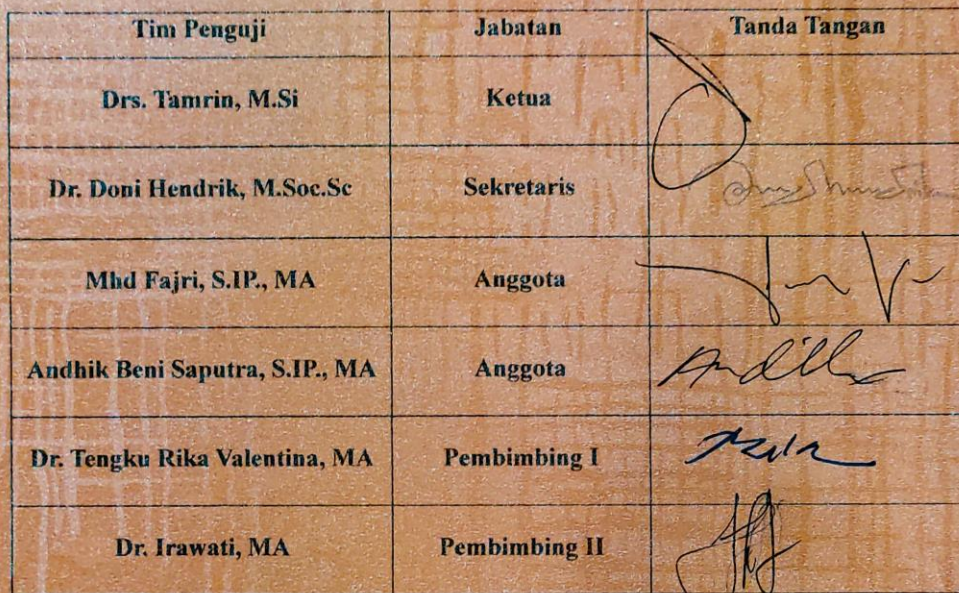 Tim Penguji Jabatan Tanda Tangan
Drs. Tamrin, M.Si Ketua
Dr. Doni Hendrik, M.Soc.Sc Sekretaris
Mhd Fajri, S.IP., MA Anggota
Andhik Beni Saputra, S.IP., MA Anggota
Dr. Tengku Rika Valentina, MA Pembimbing I
Dr. Irawati, MA Pembimbing II